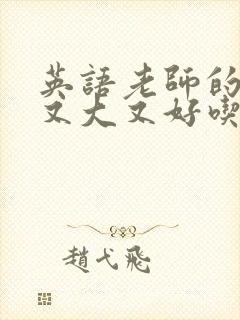 英語老師的
又大又好喫
趙弋飛